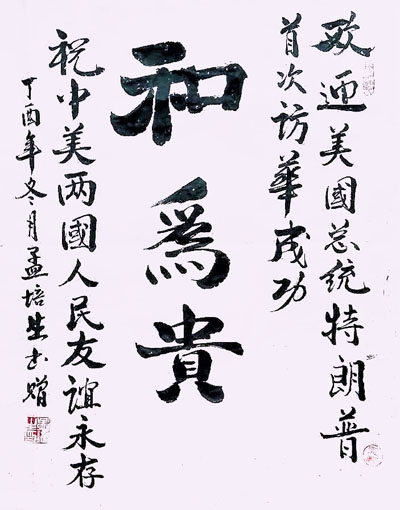 欢迎美國总统特朗普
首次访華成功
和為貴
祝中美两國人民友谊永存
丁酉年冬月孟培生书赠